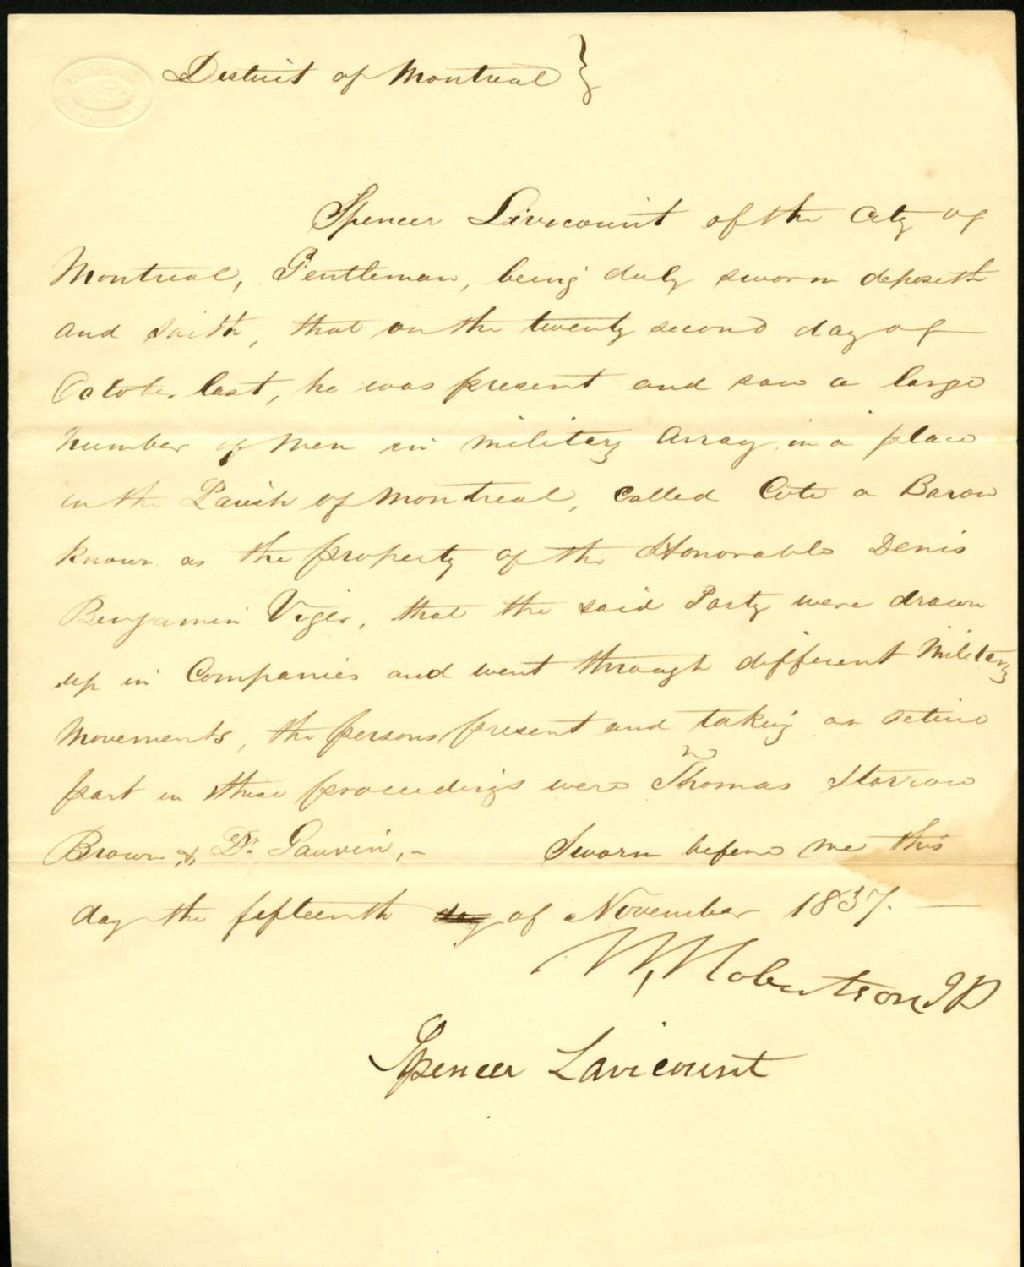 District of Montreal }
Spencer Livicount of the City of
Montreal, Gentleman, being duly sworn deposeth
and saith, that on the twenty second day of
October last, he was present and saw a large
number of men in military array in a place
in the Parish of Montreal, called Cote a Baron
known as the property of the Honorable Denis
Benjamin Viger, that the said Party were drawn
up in Companies and went through different Military
Movements, the persons present and taking an active
part in these proceedings were Thomas Storrow
Brown & Dr. Gauvin, -
Sworn before me this
day the fifteenth day of November 1837. —
W, Robertson JP
Spencer Lavicount